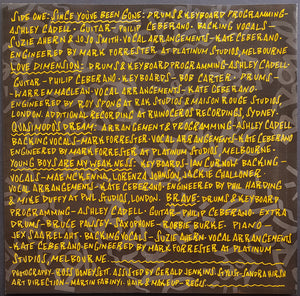 SIDE ONE: SINCE YOU'VE BEEN GONE: DRUMS & KEYBOARD PROGRAMMING-
ASHLEY CADELL - GUITAR - PHILIP CEBERANO - BACKING VOCALS -
SUZIE AHERN & JOJO SMITH - VOCAL ARRANGEMENTS - KATE CEBERANO-
ENGINEERED BY MARK FORRESTER AT PLATINUM STUDIOS, MELBOURNE
LOVE DIMENSION: DRUMS & KEYBOARD PROGRAMMING - ASHLEY CADELL-
GUITAR - PHILIP CEBERANO - KEYBOARDS - BOB CARTER - DRUMS -
VOCAL ARRANGEMENTS - KATE CEBERANO-
ENGINEERED BY ROY SPONG AT RAK STUDIOS & MAISON ROUGE STUDIOS,
LONDON. ADDITIONAL RECORDING AT RHINOCEROS RECORDINGS, SYDNEY-
QUASIMODO'S DREAM: ARRANGEMENT & PROGRAMMING - ASHLEY CADELL
BACKING VOCALS - MARK FORRESTER - VOCAL ARRANGEMENTS - KATE CEBERANO
ENGINEERED BY MARK FORRESTER AT PLATINUM STUDIOS, MELBOURNE.
YOUNG BOYS ARE MY WEAKNESS: KEYBOARDS - IAN CURNOW BACKING
VOCALS - MAE MCKENNA, LORENZA JOHNSON, JACKIE CHALLONER
VOCAL ARRANGEMENTS - KATE CEBERANO - ENGINEERED BY PHIL HARDING
& MIKE DUFFY AT PWL STUDIOS, LONDON. BRAVE: DRUMS & KEYBOARD
PROGRAMMING - ASHLEY CADELL - GUITAR - PHILIP CEBERANO - EXTRA
DRUMS - BRUCE - SAXOPHONE - ROBBIE BURKE - PIANO
JEX SAARELAHT - BACKING VOCALS - SUZIE AHERN - VOCAL ARRANGEMENTS
KATE CEBERANO - ENGINEERED BY MARK FORRESTER AT PLATINUM
STUDIOS, MELBOURNE
PHOTOGRAPHY - ROSS HONEYSETT. ASSISTED BY GERALD JENKINS STYLIST - SANDRA
ART DIRECTION - MARTIN FABINYI. HAIR & MAKEUP -